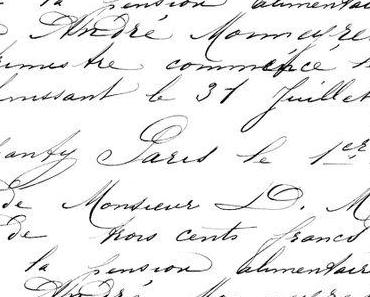 la pension alimentair
André Monmeyre
trimestre commencé
finissant le 31 Juillet
Paris le 1er
de Monsieur D. M
de trois cents francs
la pension alimentair
André